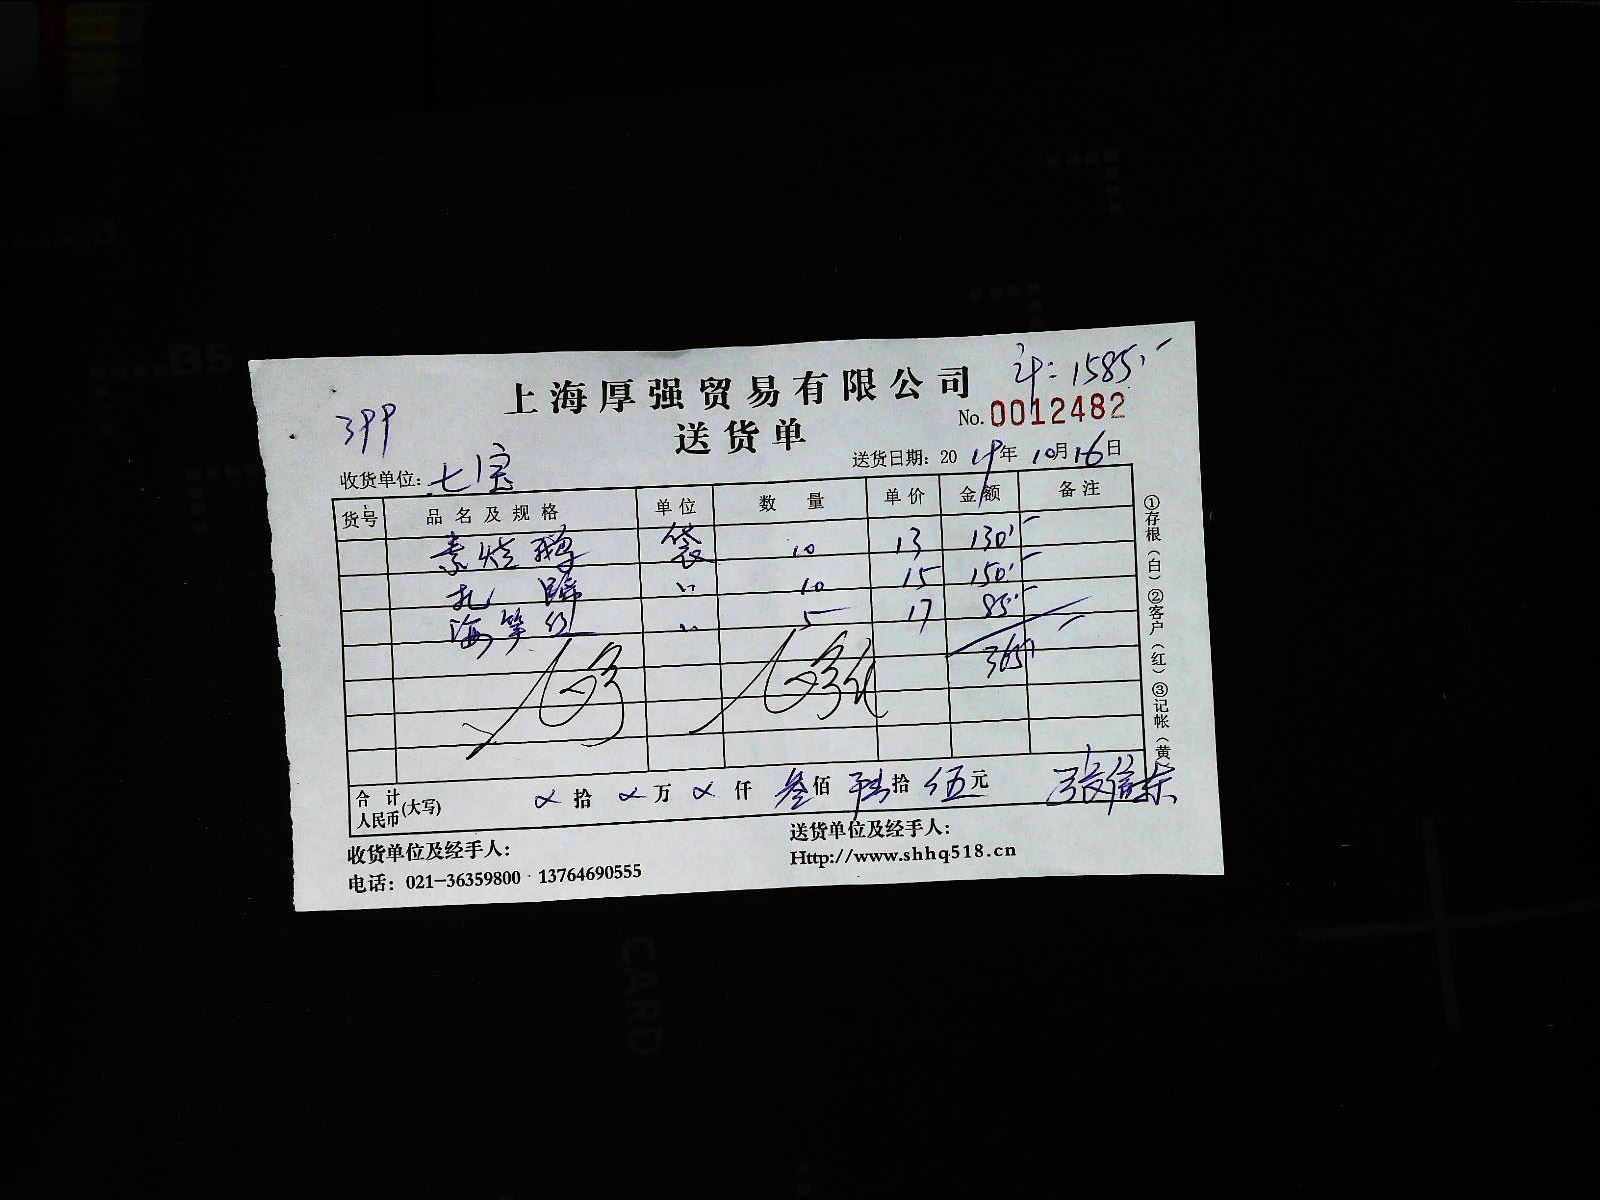 计：1585.-
上海厚强贸易有限公司
No. 0012482
送货单
399
收货单位: 七宝
送货日期: 2019年 10月 16日
货号 品名及规格 单位 数量 单价 金额 备注
素烧鹅 袋 10 13 130.-
扎蹄 〃 10 15 150.-
海笋丝 〃 5 17 85.-
365.-
合计人民币(大写) × 拾 × 万 × 仟 叁佰 陆拾 伍元
①存根（白）②客户（红）③记帐（黄
收货单位及经手人:
送货单位及经手人:
电话: 021-36359800 · 13764690555
Http://www.shhq518.cn
B5
CARD
A4